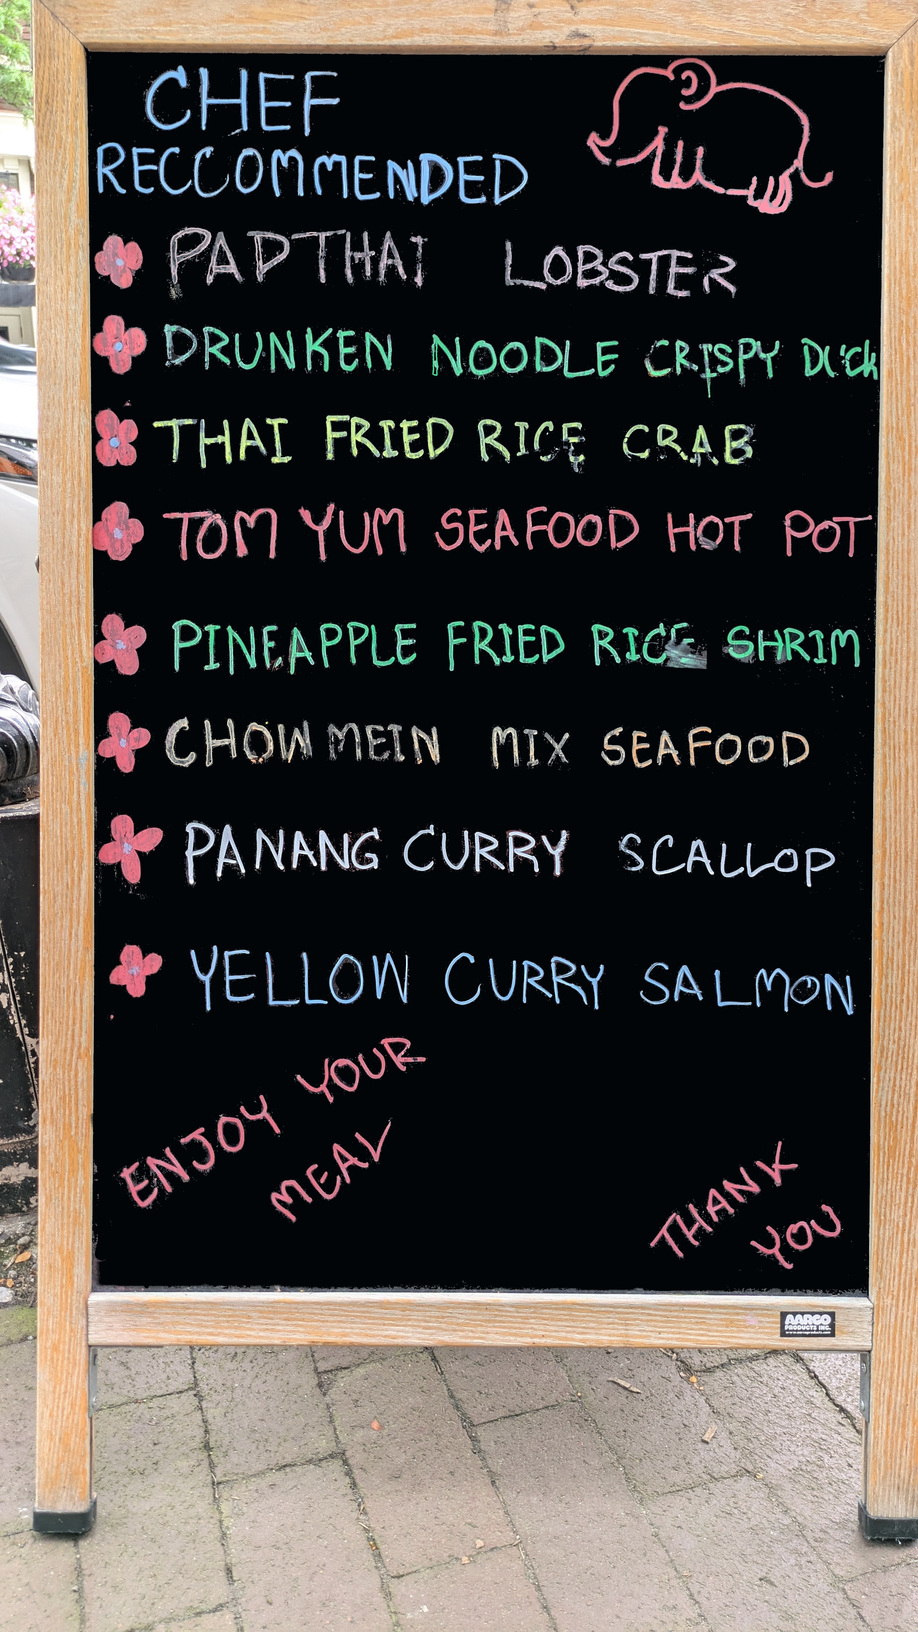 CHEF
RECCOMMENDED
PADTHAI LOBSTER
DRUNKEN NOODLE CRISPY Duck
THAI FRIED RICE CRAB
TOM YUM SEAFOOD HOT POT
PINEAPPLE FRIED RICE SHRIM
CHOW MEIN MIX SEAFOOD
PANANG CURRY SCALLOP
YELLOW CURRY SALMON
ENJOY YOUR
MEAL
THANK
YOU
AARCO
PRODUCTS INC.
www.aarcoproducts.com